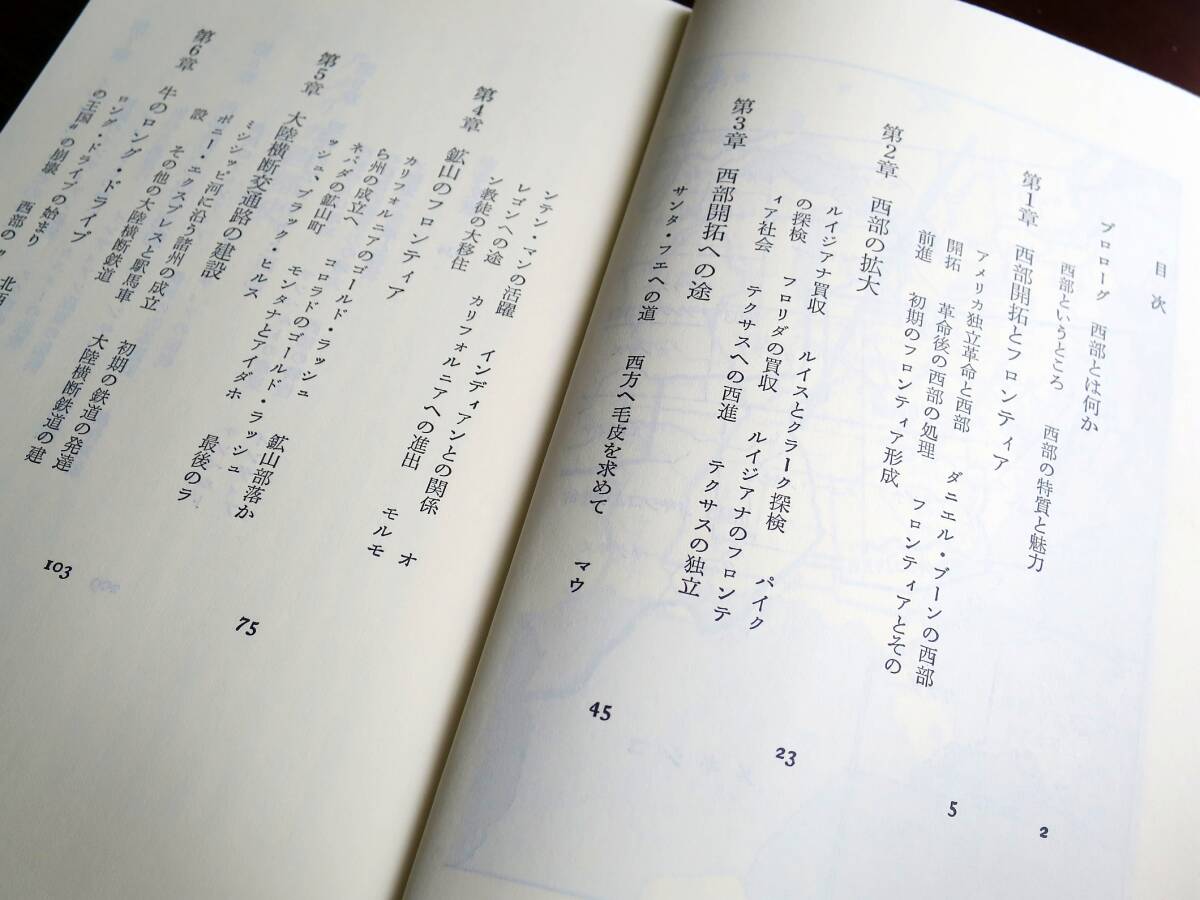 目次
プロローグ 西部とは何か 2
西部というところ 西部の特質と魅力
第1章 西部開拓とフロンティア 5
アメリカ独立革命と西部 ダニエル・ブーンの西部
開拓 革命後の西部の処理 フロンティアとその
前進 初期のフロンティア形成
第2章 西部の拡大 23
ルイジアナ買収 ルイスとクラーク探検 パイク
の探検 フロリダの買収 ルイジアナのフロンテ
ィア社会 テクサスへの西進 テクサスの独立
第3章 西部開拓への途 45
サンタ・フェへの道 西方へ毛皮を求めて マウ
ンテン・マンの活躍 インディアンとの関係 オ
レゴンへの途 カリフォルニアへの進出 モルモ
ン教徒の大移住
第4章 鉱山のフロンティア 75
カリフォルニアのゴールド・ラッシュ 鉱山部落か
ら州の成立へ コロラドのゴールド・ラッシュ
ネバダの鉱山町 モンタナとアイダホ 最後のラ
ッシュ、ブラック・ヒルス
第5章 大陸横断交通路の建設 103
ミシシッピ河に沿う諸州の成立 初期の鉄道の発達
ポニー・エクスプレスと駅馬車 大陸横断鉄道の建
設 その他の大陸横断鉄道
第6章 牛のロング・ドライブ
ロング・ドライブの始まり 西部の〝牛
の王国〟の崩壊 北西